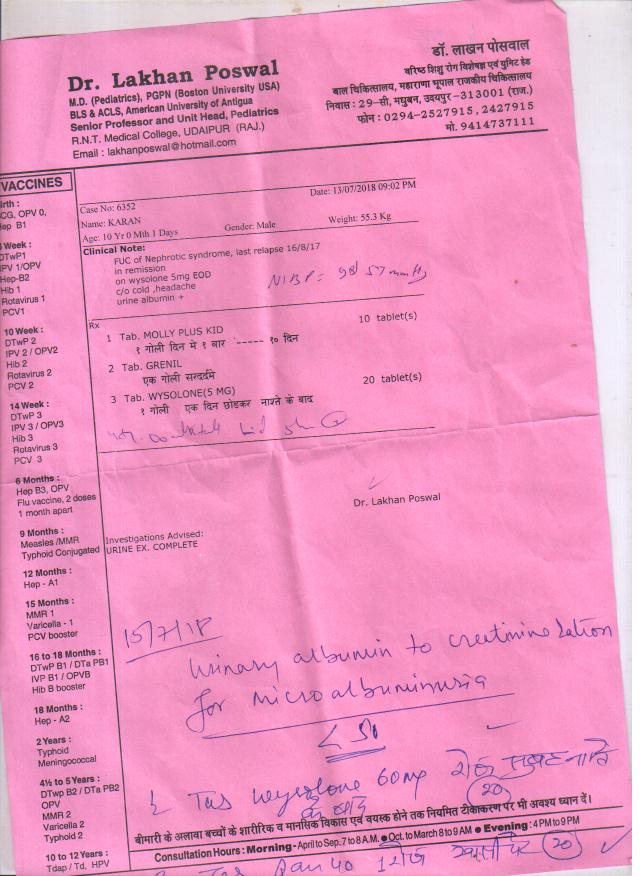 Dr. Lakhan Poswal
M.D. (Pediatrics), PGPN (Boston University USA)
BLS & ACLS, American University of Antigua
Senior Professor and Unit Head, Pediatrics
R.N.T. Medical College, UDAIPUR (RAJ.)
Email : lakhanposwal@hotmail.com
डॉ. लाखन पोसवाल
वरिष्ठ शिशु रोग विशेषज्ञ एवं यूनिट हेड
बाल चिकित्सालय, महाराणा भूपाल राजकीय चिकित्सालय
निवास : 29-सी, मधुबन, उदयपुर-313001 (राज.)
फोन : 0294-2527915, 2427915
मो. 9414737111
VACCINES
irth :
CG, OPV 0,
ep B1
Week :
DTwP1
PV 1/OPV
Hep-B2
Hib 1
Rotavirus 1
PCV1
10 Week :
DTwP 2
IPV 2 / OPV2
Hib 2
Rotavirus 2
PCV 2
14 Week :
DTwP 3
IPV 3 / OPV3
Hib 3
Rotavirus 3
PCV 3
6 Months :
Hep B3, OPV
Flu vaccine, 2 doses
1 month apart
9 Months :
Measles /MMR
Typhoid Conjugated
12 Months :
Hep - A1
15 Months :
MMR 1
Varicella - 1
PCV booster
16 to 18 Months :
DTwP B1 / DTa PB1
IVP B1 / OPVB
Hib B booster
18 Months :
Hep - A2
2 Years :
Typhoid
Meningococcal
4½ to 5 Years :
DTwp B2 / DTa PB2
OPV
MMR 2
Varicella 2
Typhoid 2
10 to 12 Years :
Tdap / Td, HPV
Case No: 6352 Date: 13/07/2018 09:02 PM
Name: KARAN
Age: 10 Yr 0 Mth 1 Days Gender: Male Weight: 55.3 Kg
Clinical Note:
FUC of Nephrotic syndrome, last relapse 16/8/17
in remission
on wysolone 5mg EOD
c/o cold ,headache
urine albumin +
NIBP =
Rx
1 Tab. MOLLY PLUS KID 10 tablet(s)
१ गोली दिन मे १ बार '----- १० दिन
2 Tab. GRENIL
एक गोली सरदर्दमे
3 Tab. WYSOLONE(5 MG) 20 tablet(s)
१ गोली एक दिन छोडकर नाश्ते के बाद
Dr. Lakhan Poswal
Investigations Advised:
URINE EX. COMPLETE
15/7/18
Urinary albumin to creatinine ration
for microalbuminuria
Tab wysolone 60mg रोज सुबह
20
के बाद
बीमारी के अलावा बच्चों के शारीरिक व मानसिक विकास एवं वयस्क होने तक नियमित टीकाकरण पर भी अवश्य ध्यान दें।
Consultation Hours : Morning - April to Sep. 7 to 8 A.M. ● Oct. to March 8 to 9 AM ● Evening : 4 PM to 9 PM
Tab Pan 40 1 रोज खाली पेट 20